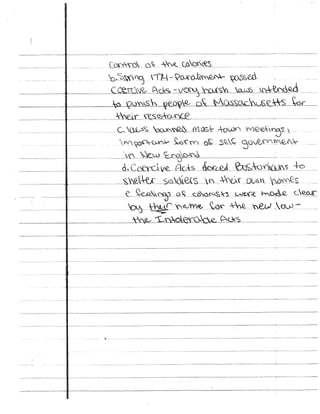 control of the colonies
b. Spring 1774-Paraliment passed
Coercive Acts-very harsh laws intended
to punish people of Massachusetts for
their resetance
c. laws banned most town meetings,
important form of self government
in New England
d. Coercive Acts dorced Bostonians to
shelter soldiers in their own homes
e. feelings of colonists were made clear
by their name for the new law-
the Intolerable Acts